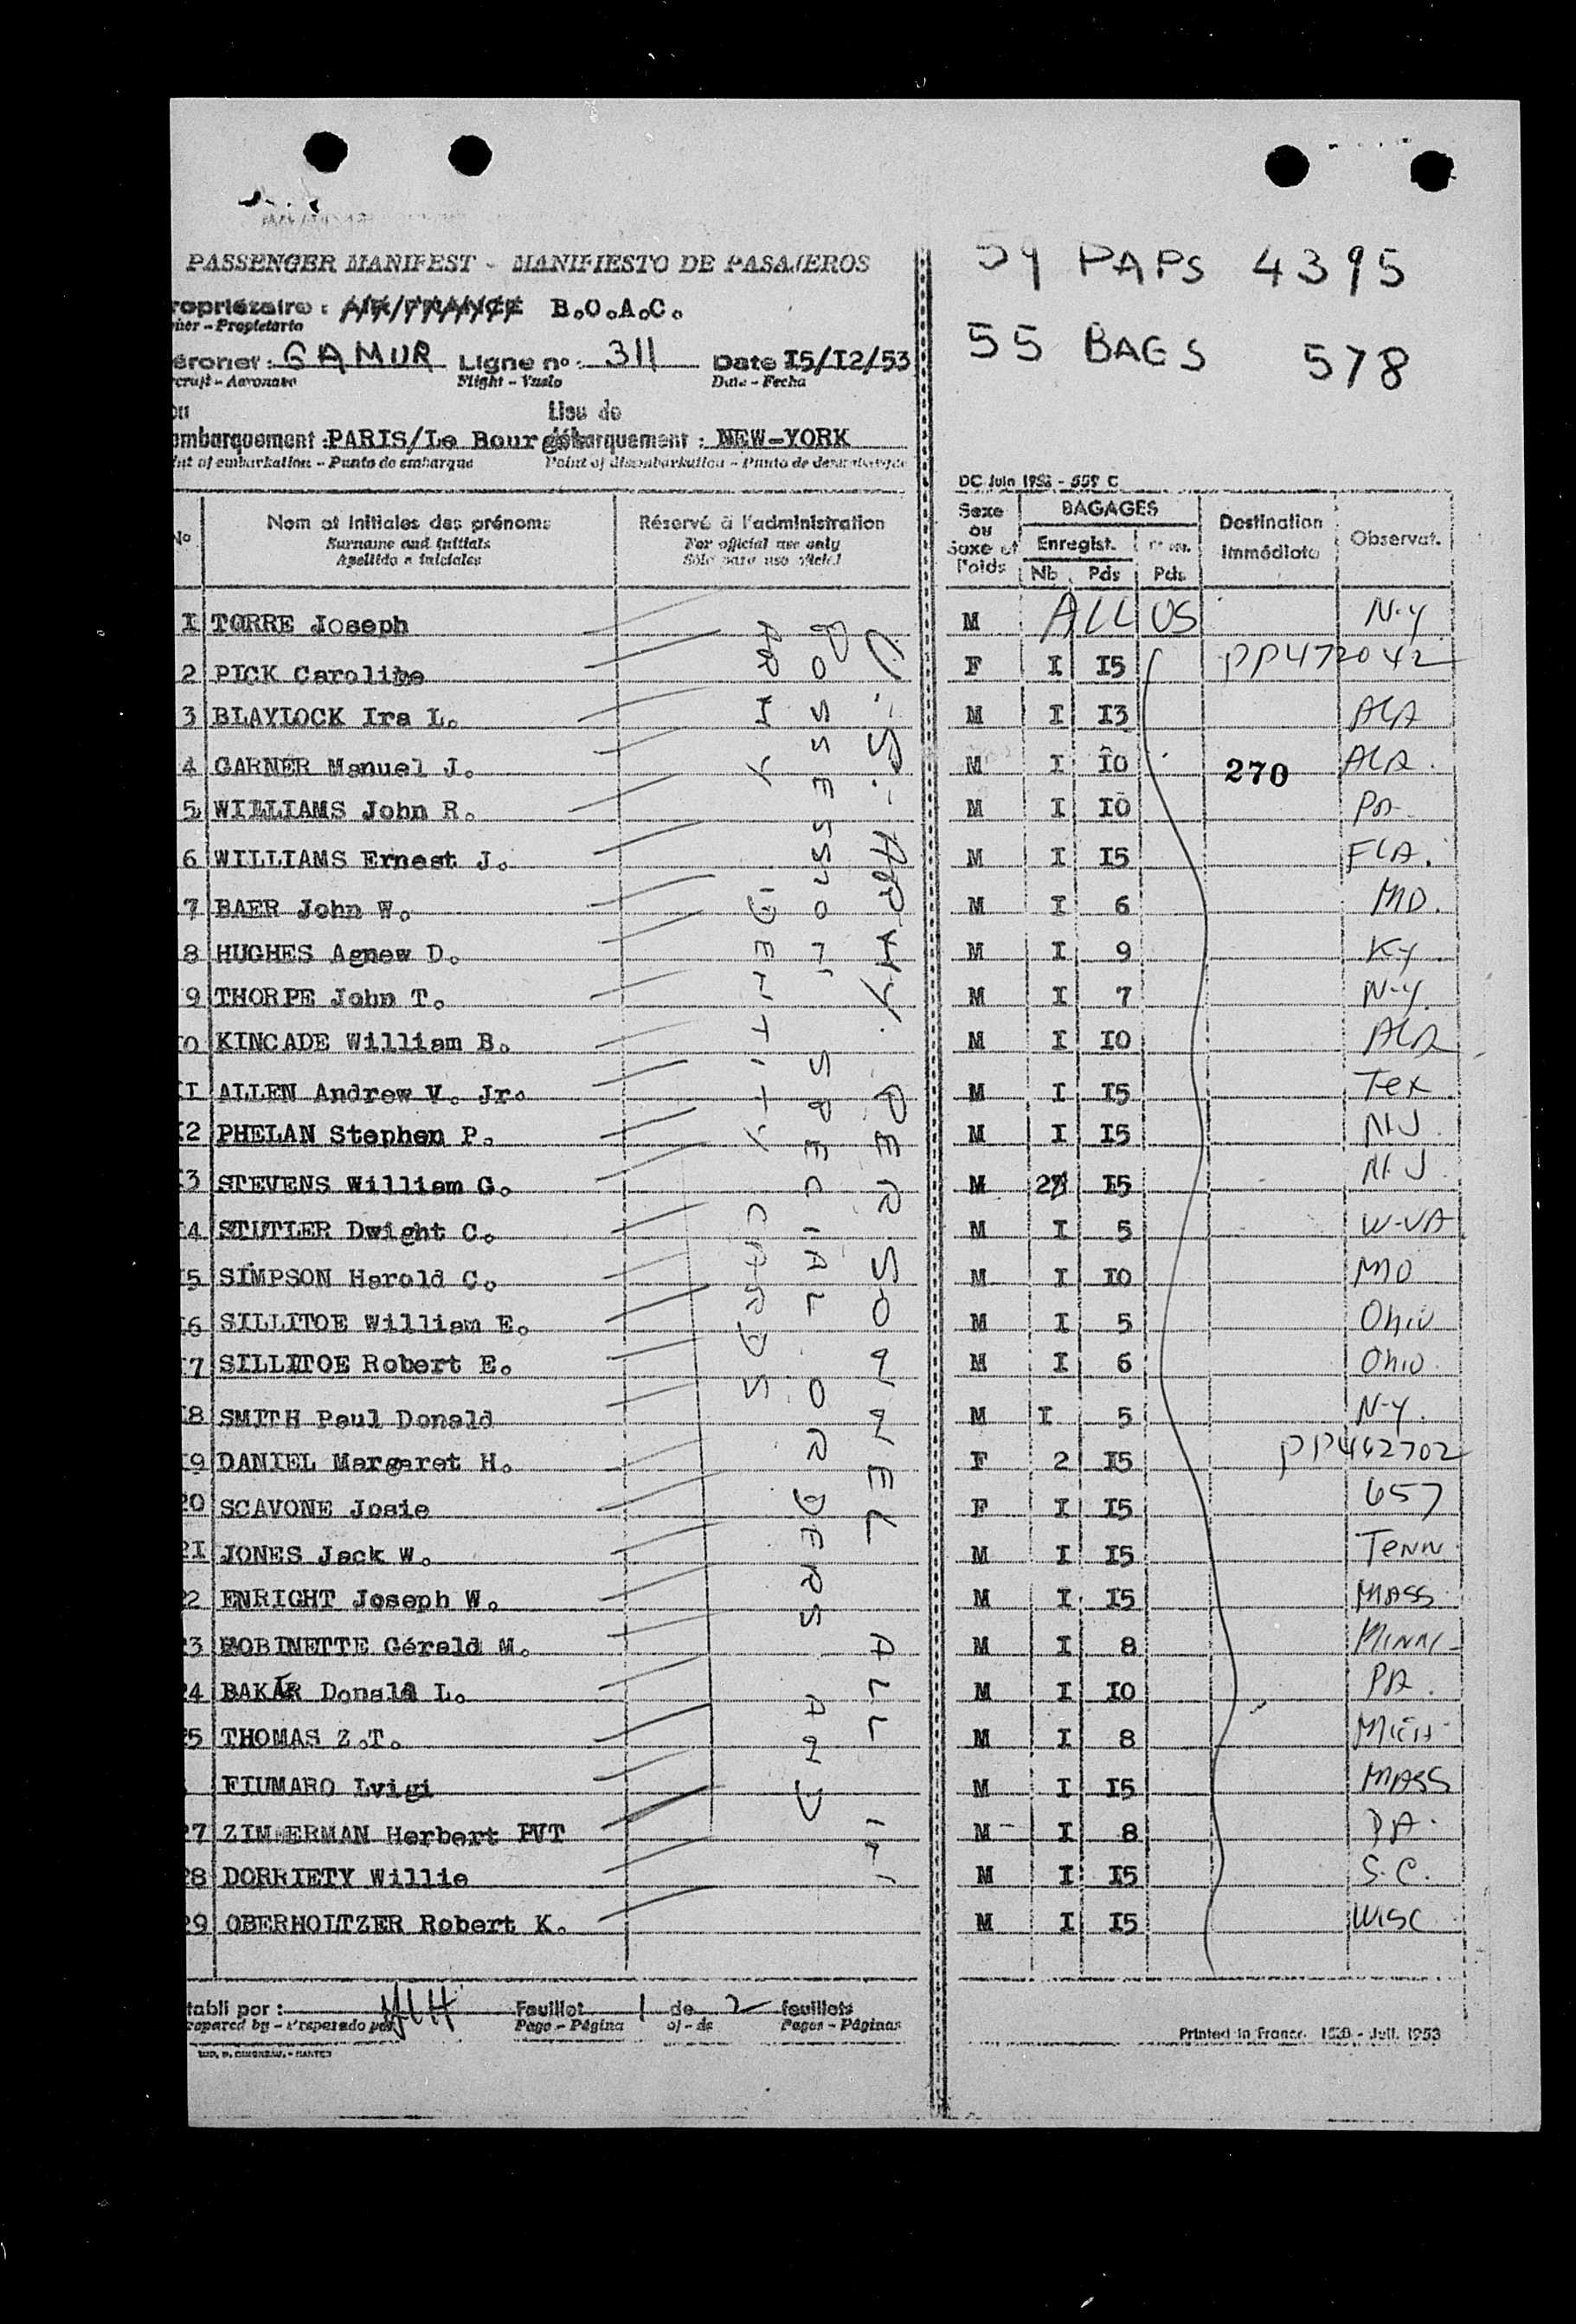 PASSENGER MANIFEST - MANIFIESTO DE PASAJEROS
ropriétaire : AIR/FRANCE B.O.A.C.
ner - Propietario
éronef : GAMUR Ligne no : 311 Date I5/I2/53
craft - Aeronave Flight - Vuelo Date - Fecha
ou Lieu de
embarquement : PARIS/Le Bourget débarquement : NEW-YORK
int of embarkation - Punto de embarque Point of disembarkation - Punto de desembarque
59 PAPS 4395
55 BAGS 578
DC Juin 1953 - 559 C
No Nom et initiales des prénoms Réservé à l'administration Sexe ou Sexe et Poids BAGAGES Destination immédiate Observat.
Surname and initials For official use only Enregist.
Apellido e iniciales Sólo para uso oficial Nb Pds Pds
I TORRE Joseph M ALL US N.Y
2 PICK Caroline F I I5 PP472042
3 BLAYLOCK Ira L. M I I3 ALA
4 GARNER Manuel J. M I I0 270 ALA.
5 WILLIAMS John R. M I I0 PA
6 WILLIAMS Ernest J. M I I5 FLA.
7 BAER John W. M I 6 MD.
8 HUGHES Agnew D. M I 9 Ky
9 THORPE John T. M I 7 N-Y
0 KINCADE William B. M I I0 ALA
I ALLEN Andrew V. Jr. M I I5 Tex
2 PHELAN Stephen P. M I I5 N.J.
3 STEVENS William G. M 2 I5 N.J.
4 STUTLER Dwight C. M I 5 W-VA
5 SIMPSON Harold C. M I I0 MO
6 SILLITOE William E. M I 5 Ohio
7 SILLITOE Robert E. M I 6 Ohio.
I8 SMITH Paul Donald M I 5 N-Y.
I9 DANIEL Margaret H. F 2 I5 PP462702
20 SCAVONE Josie F I I5 657
2I JONES Jack W. M I I5 TENN
2 ENRIGHT Joseph W. M I I5 MASS
3 ROBINETTE Gérald M. M I 8 MINN
24 BAKER Donald L. M I I0 PA.
5 THOMAS Z.T. M I 8 MICH
FIUMARO Lvigi M I I5 MASS
27 ZIMMERMAN Herbert PVT M - I 8 PA.
28 DORRIETY Willie M I I5 S.C.
29 OBERHOLTZER Robert K. M I I5 WISC
U.S. ARMY. PERSONNEL ALL
POSSESS SPECIAL ORDERS AND
ARMY IDENTITY CARDS
tabli par : Feuillet 1 de 2 feuillets
repared by - Preparado por Page - Página of - de Pages - Páginas
Printed in France 1520 - Juil. 1953